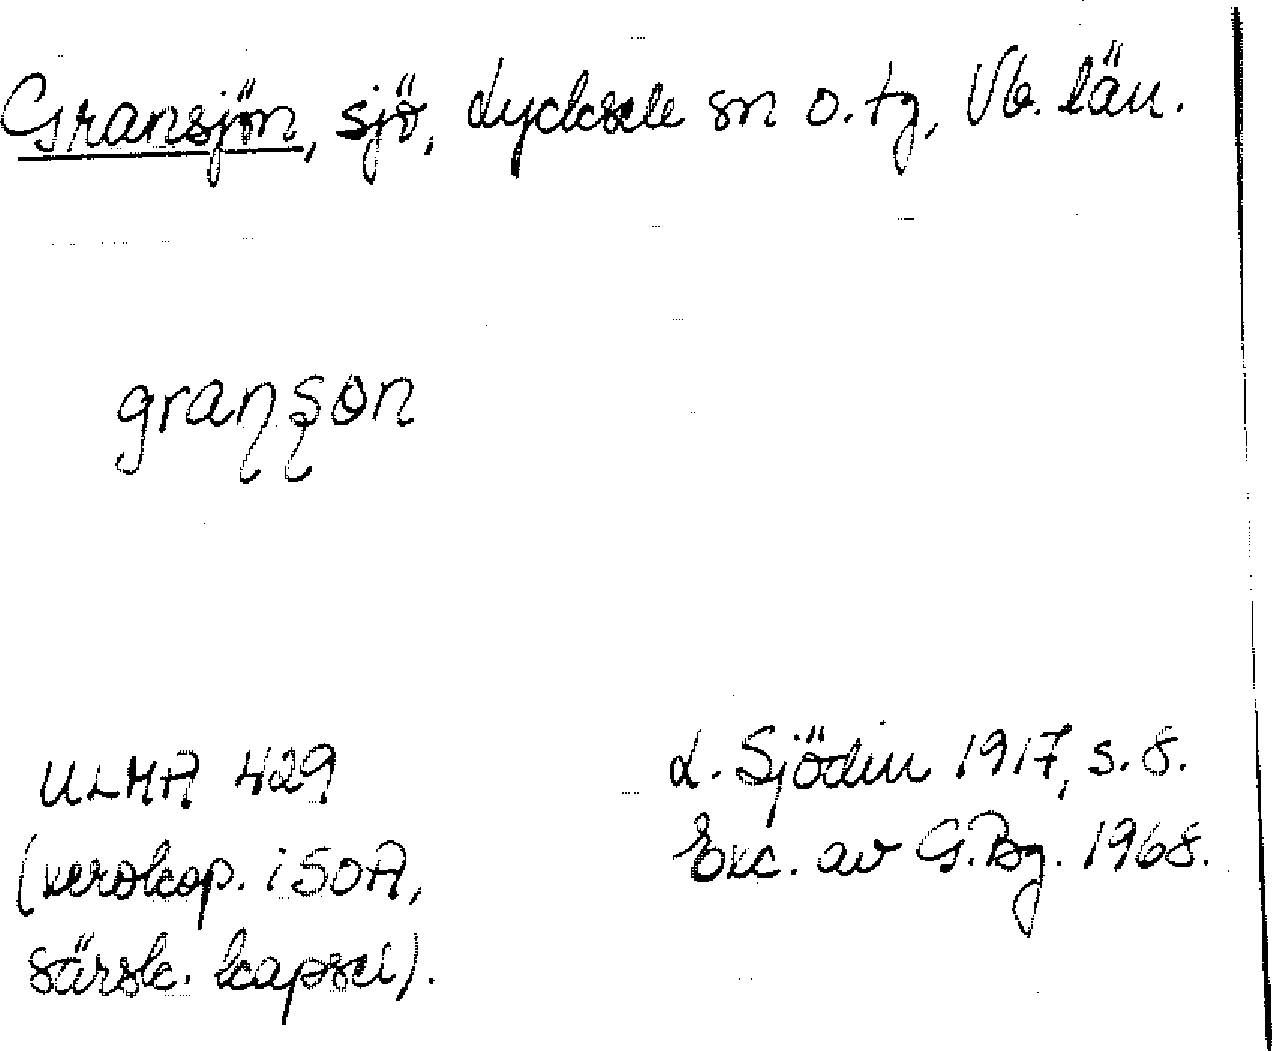 Gransjön, sjö, Lycksele sn o. tg, Vb. län.
granson
ULMA 429
(xerokop. i SOA,
särsk. kapsel).
L. Sjödin 1917, s. 8.
Exc. av G.Bg. 1968.